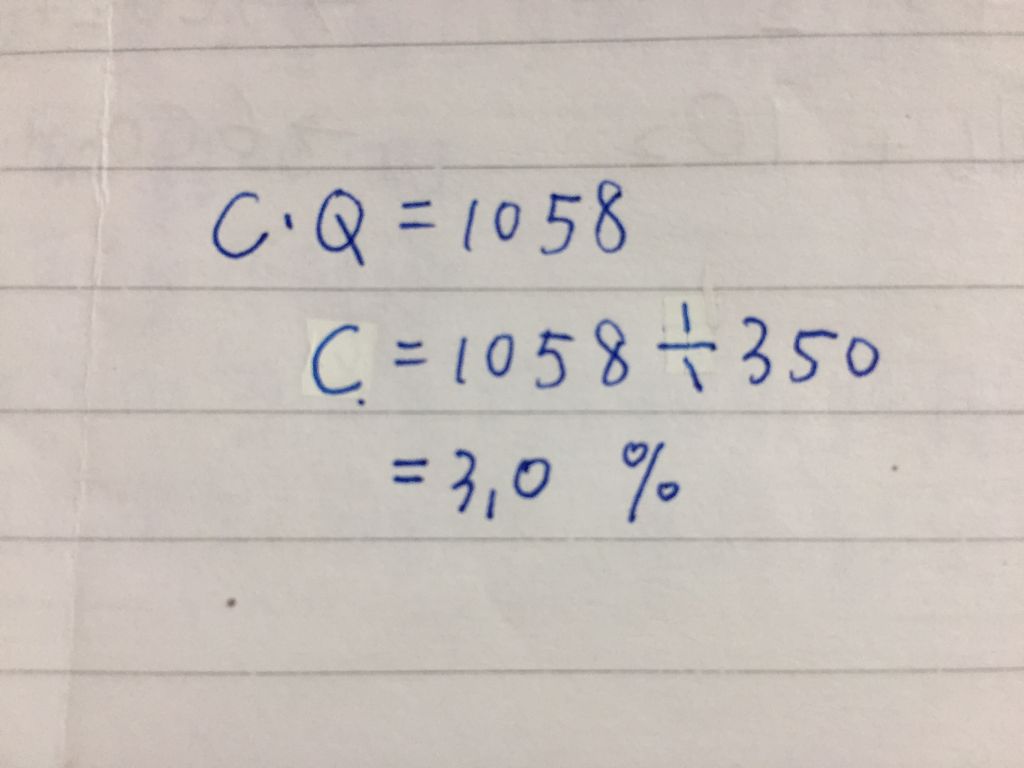 C·Q = 1058
C = 1058 ÷ 350
= 3,0 %